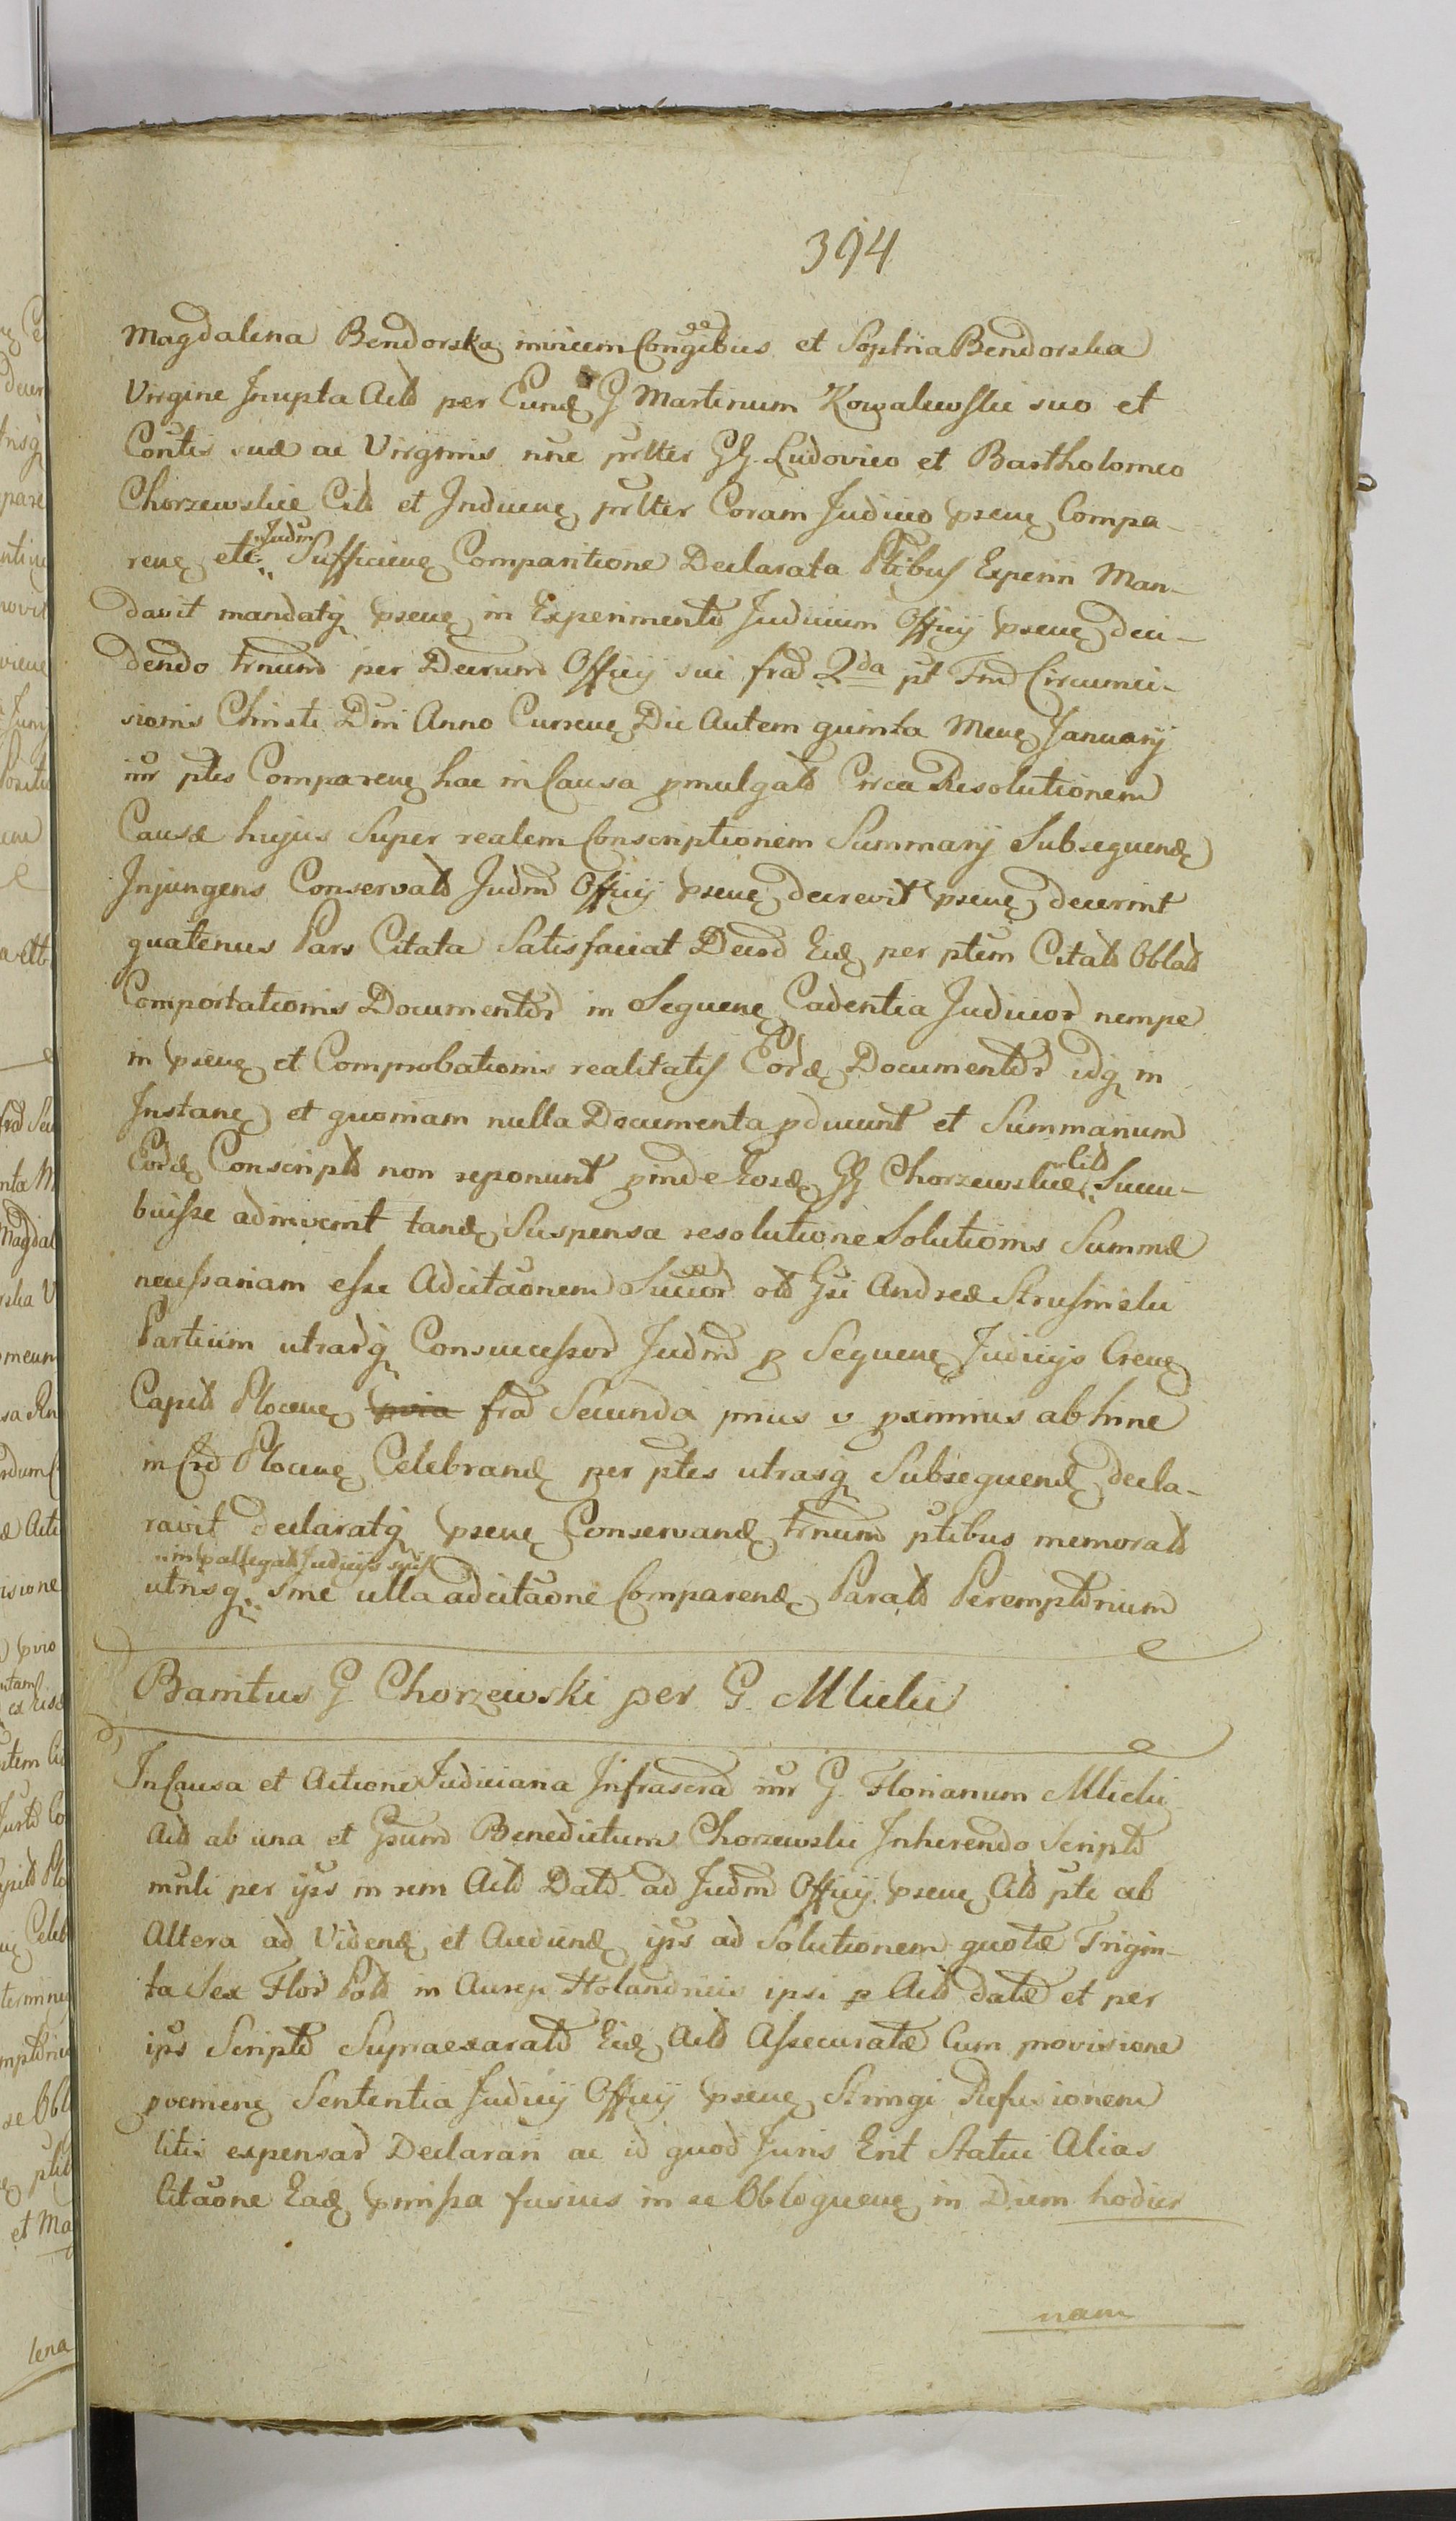 394
Magdalena Bendorska invicem Congibus et Sophia Bendorska
Virgine Innupta Actd per Eund G Martinum Kowalewski suo et
Contis suæ ac Virginis nne prltter GG. Ludovico et Bartholomeo
Chorzewskie Citd et Inducen prltter Coram Judicio pseue Compa-
reue ete Judm Sufficiene Comparitione Declarata Ptibus Experiri Man-
davit mandatq pseue in Experimento Judicium Officij pseue deci-
dendo trnum per Decrum Officij sui frad 2da pt Fmd Circumci-
sionis Christi Dni Anno Curreue Die Autem quinta Meue January
inr ptes Compareue hac in Causa pmulgatd Circa Resolutionem
Causæ hujus Super realem Conscriptionem Summarij Subsequend
Injungens Conservatd Judmd Officij pseue decrevit pseue decernit
quatenus Pars Citata Satisfaciat Decrd Eid per ptem Citatd Oblatd
Comportationis Documentor in Sequene Cadentia Judicior nempe
in pseue et Comprobationis realitatis Eord Documentor idq in
Instane et quoniam nulla Documenta pducunt et Summarium
Eord Conscriptd non reponunt pinde Eosd GG Chorzewskie Citd Succu-
buisse adinvenit tand Suspensa resolutione Solutionis Summæ
necessariam esse Adcitaonem Succor old Gsi Andreæ Strusinski
Partium utrarq Consuccessor Judmd p Sequene Judicijs Creue
Capitd Ploceue frad Secunda prius v pximius abhinc
in Crd Ploceue Celebrand per ptes utrasq Subsequend decla-
ravit declaratq pseue Conservand trnum ptibus memoratd
in pallegatd Judicijs
utrisq sine ulla adcitaone Comparend Paratd Peremptorium
Banitus G. Chorzewski per G. Mlicki
In Causa et Actione Judiciaria Infrascrad inr G. Florianum Mlicki
Actd ab una et Gsum Benedictum Chorzewski Inherendo Scriptd
mnli per ips in rem Actd Datd ad Judmd Officij pseue Citd pte ab
Altera ad Vidend et Audiend ips ad Solutionem quotæ Trigin-
ta Sex Flor Pold in Aureis Holandricis ipsi p Actd datæ et per
ips Scriptd Supraexaratd Eid Actd Assecuratæ Cum provisione
pvemiene Sententia Judicij Officij pseue Stringi Refusionem
litis expensar Declarari ac id quod Juris Erit Statui Alias
Citaone Ead pmissa fusius in se Obloqueue in Diem hodier
nam